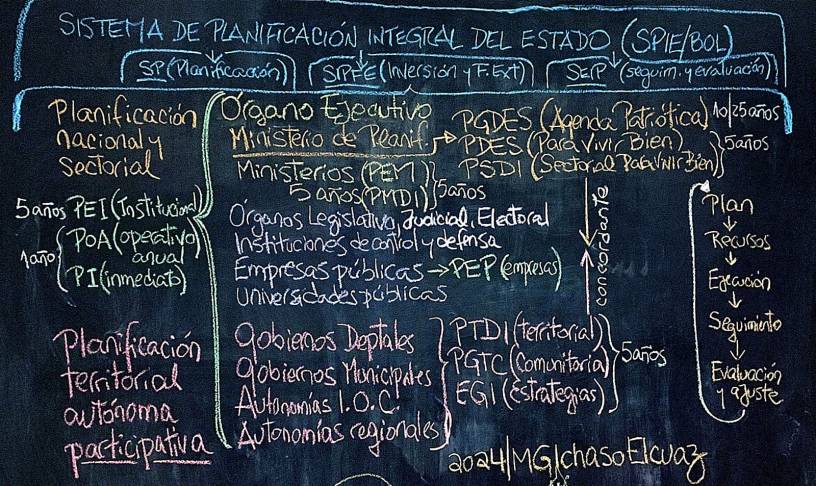 SISTEMA DE PLANIFICACIÓN INTEGRAL DEL ESTADO (SPIE/BOL)
SP (Planificación) SIPFE (Inversión y F.Ext) SEIP (seguim. y evaluación)
Planificación
nacional y
Sectorial
5 años PEI (Institucional)
1 año POA (operativo
anual
PI (inmediato)
Órgano Ejecutivo
Ministerio de Planif.
Ministerios (PEM)
5 años (PMDI) 5 años
Órganos Legislativo, Judicial, Electoral
Instituciones de control y defensa
Empresas públicas → PEP (empresas)
Universidades públicas
PGDES (Agenda Patriótica) 10/25 años
PDES (Para Vivir Bien)
PSDI (Sectorial Para Vivir Bien)
5 años
concordante
Plan
Recursos
Ejecución
Seguimiento
Evaluación
y ajuste
Planificación
territorial
autónoma
participativa
Gobiernos Deptales
Gobiernos Municipales
Autonomías I.O.C.
Autonomías regionales
PTDI (territorial)
PGTC (Comunitaria)
EGI (Estrategias)
5 años
2024/MG/chasoElcuaz